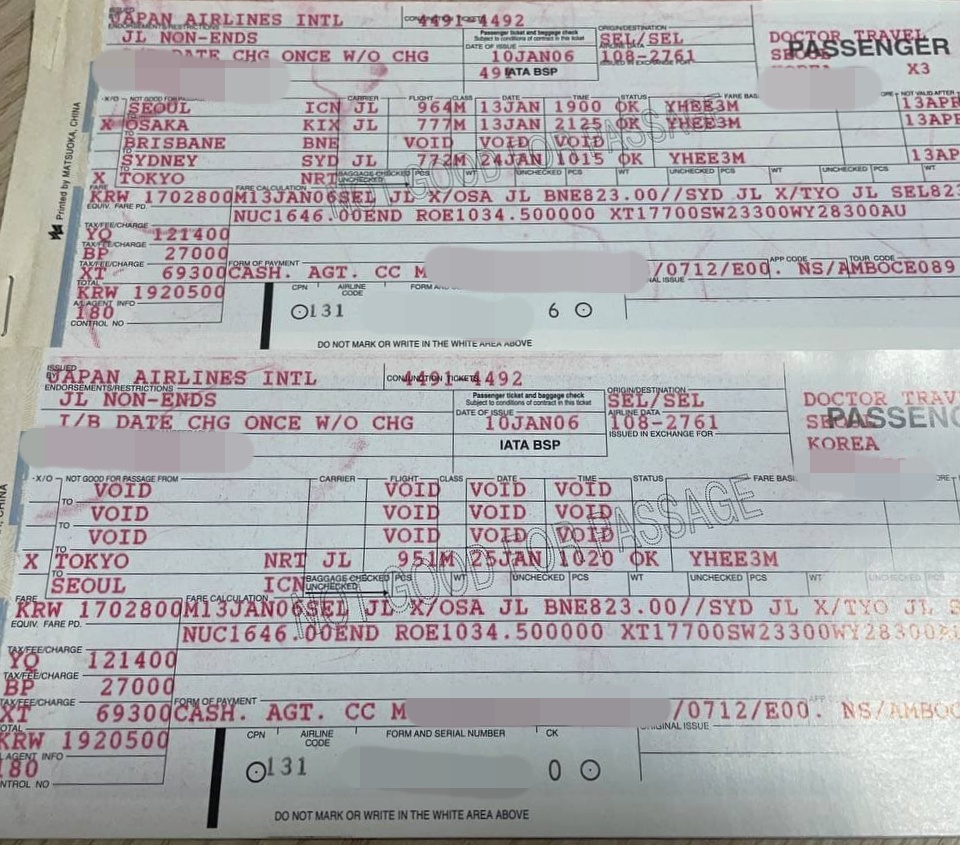 ISSUED BY JAPAN AIRLINES INTL CONJUNCTION TICKETS 4491-4492
ENDORSEMENTS/RESTRICTIONS Passenger ticket and baggage check ORIGIN/DESTINATION DOCTOR TRAVEL
JL NON-ENDS Subject to conditions of contract in this ticket SEL/SEL PASSENGER
DATE OF ISSUE AIRLINE DATA
DATE CHG ONCE W/O CHG 10JAN06 108-2761 SEOUL
ISSUED IN EXCHANGE FOR
49 IATA BSP KOREA X3
X/O NOT GOOD FOR PASSAGE CARRIER FLIGHT CLASS DATE TIME STATUS FARE BAS NOT VALID AFTER
SEOUL ICN JL 964M 13JAN 1900 OK YHEE3M 13APR
X OSAKA KIX JL 777M 13JAN 2125 OK YHEE3M 13APR
BRISBANE BNE VOID VOID VOID
SYDNEY SYD JL 772M 24JAN 1015 OK YHEE3M 13AP
X TOKYO NRT BAGGAGE CHECKED UNCHECKED PCS WT UNCHECKED PCS WT UNCHECKED PCS WT UNCHECKED PCS
NOT GOOD FOR PASSAGE
FARE FARE CALCULATION
KRW 1702800 M13JAN06SEL JL X/OSA JL BNE823.00//SYD JL X/TYO JL SEL823
EQUIV. FARE PD. NUC1646.00END ROE1034.500000 XT17700SW23300WY28300AU
TAX/FEE/CHARGE
YQ 121400
TAX/FEE/CHARGE
BP 27000
TAX/FEE/CHARGE FORM OF PAYMENT APP CODE TOUR CODE
XT 69300 CASH. AGT. CC M /0712/E00. NS/AMBOCE089
TOTAL
KRW 1920500 CPN AIRLINE CODE FORM
AGENT INFO
180 131 6
CONTROL NO
DO NOT MARK OR WRITE IN THE WHITE AREA ABOVE
Printed by MATSUOKA, CHINA
ISSUED BY JAPAN AIRLINES INTL CONJUNCTION TICKETS 4491-4492
ENDORSEMENTS/RESTRICTIONS Passenger ticket and baggage check ORIGIN/DESTINATION
JL NON-ENDS Subject to conditions of contract in this ticket SEL/SEL DOCTOR TRAV
DATE OF ISSUE AIRLINE DATA
I/B DATE CHG ONCE W/O CHG 10JAN06 108-2761 SEOUL PASSENG
ISSUED IN EXCHANGE FOR
IATA BSP KOREA
X/O NOT GOOD FOR PASSAGE FROM CARRIER FLIGHT CLASS DATE TIME STATUS FARE BASI
VOID VOID VOID VOID
TO VOID VOID VOID VOID
TO VOID VOID VOID
X TO TOKYO NRT JL 951M 25JAN 1020 OK YHEE3M
TO SEOUL ICN BAGGAGE CHECKED UNCHECKED PCS WT UNCHECKED PCS WT UNCHECKED PCS WT UNCHECKED PCS
NOT GOOD FOR PASSAGE
FARE FARE CALCULATION
KRW 1702800 M13JAN06SEL JL X/OSA JL BNE823.00//SYD JL X/TYO JL S
EQUIV. FARE PD. NUC1646.00END ROE1034.500000 XT17700SW23300WY28300AU
TAX/FEE/CHARGE
YQ 121400
TAX/FEE/CHARGE
BP 27000
TAX/FEE/CHARGE FORM OF PAYMENT
XT 69300 CASH. AGT. CC M /0712/E00. NS/AMBOC
TOTAL ORIGINAL ISSUE
KRW 1920500 CPN AIRLINE CODE FORM AND SERIAL NUMBER CK
AGENT INFO
180 131 0
NTROL NO
DO NOT MARK OR WRITE IN THE WHITE AREA ABOVE